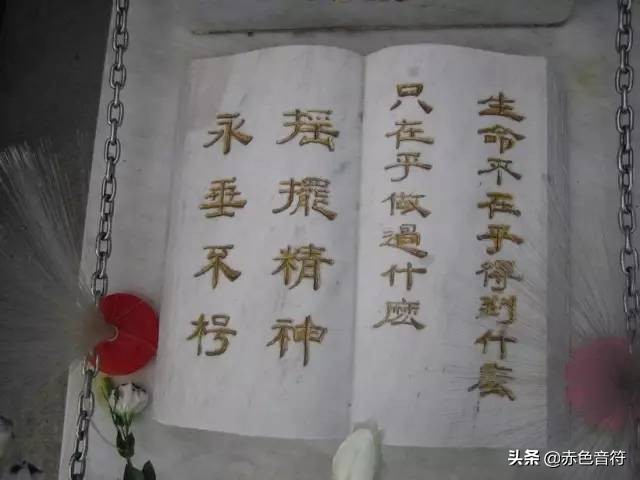 生命不在乎得到什麼
只在乎做過什麼
搖擺精神
永垂不朽
头条 @赤色音符